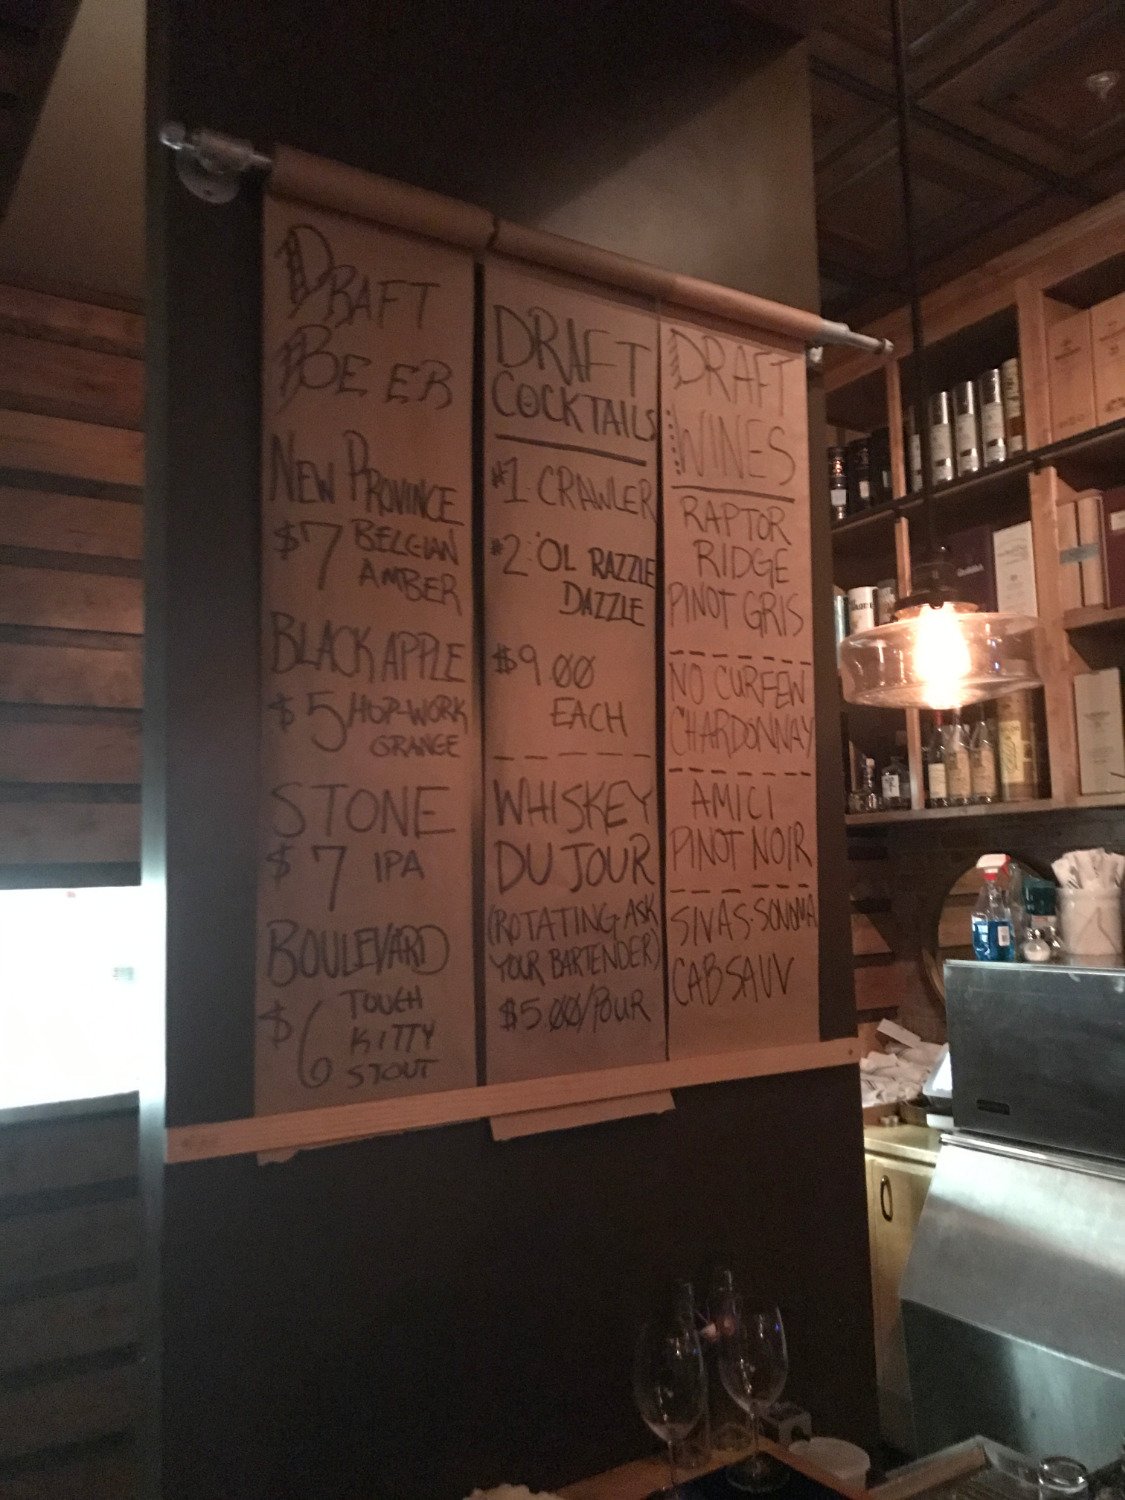 DRAFT
BEER
NEW PROVINCE
$7 BELGIAN
AMBER
BLACK APPLE
$5 HOP-WORK
ORANGE
STONE
$7 IPA
BOULEVARD
$6 TOUGH
KITTY
STOUT
DRAFT
COCKTAILS
#1 CRAWLER
#2 'OL RAZZLE
DAZZLE
$9.00
EACH
WHISKEY
DU JOUR
(ROTATING-ASK
YOUR BARTENDER)
$5.00/POUR
DRAFT
WINES
RAPTOR
RIDGE
PINOT GRIS
NO CURFEW
CHARDONNAY
AMICI
PINOT NOIR
SIVAS-SONOMA
CAB SAUV